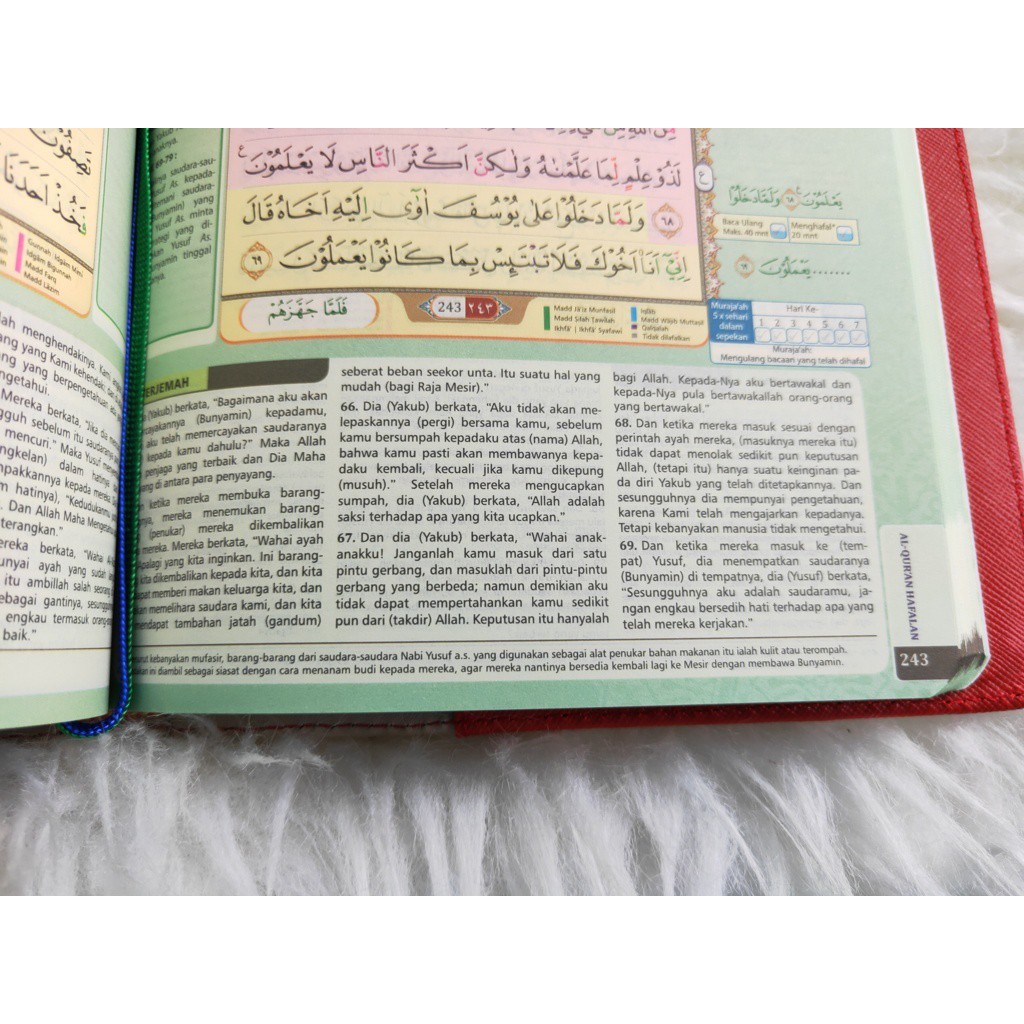 نَصِفُوْنَ
نَأْخُذَ اَحَدَنَا
Gunnah | Idgām Mimi
Idgām Bigunnah
Madd Farq
Madd Lāzim
lah menghendakinya. Kami
ang yang Kami kehendaki dan
ang berpengetahuan ada
ngetahui.
Mereka berkata, "Jika dia
gguh sebelum itu saudaranya
mencuri." Maka Yusuf
ngkelan) dalam hatinya
mpakkannya kepada mereka
m hatinya), "Kedudukanmu
. Dan Allah Maha Mengetahui
terangkan."
ereka berkata, "Wahai
unyai ayah yang sudah
itu ambillah salah seorang
ebagai gantinya, sesungguhnya
engkau termasuk orang
baik."
69-79:
nya saudara-sau-
usuf As. kepada-
saudara-
unyamin) yang
usuf As. minta
tegi yang di-
kan Yusuf As.
unyamin tinggal
لَذُوْ عِلْمٍ لِّمَا عَلَّمْنٰهُ وَلٰكِنَّ اَكْثَرَ النَّاسِ لَا يَعْلَمُوْنَ ع
٦٨ وَلَمَّا دَخَلُوْا عَلٰى يُوْسُفَ اٰوٰٓى اِلَيْهِ اَخَاهُ قَالَ
اِنِّيْٓ اَنَا۠ اَخُوْكَ فَلَا تَبْتَىِٕسْ بِمَا كَانُوْا يَعْمَلُوْنَ ٦٩
فَلَمَّا جَهَّزَهُمْ
243 ٢٤٣
Madd Jā'iz Munfaṣil
Madd Ṣilah Ṭawīlah
Ikhfā' | Ikhfā' Syafawi
Iqlāb
Madd Wājib Muttaṣil
Qalqalah
Tidak dilafalkan
ع
يَعْلَمُوْنَ ٦٨ وَلَمَّا دَخَلُوْا
Baca Ulang
Maks. 40 mnt
Menghafal*
20 mnt
.......يَعْمَلُوْنَ ٦٩
Muraja'ah
5 x sehari
dalam
sepekan
Hari Ke-
1 2 3 4 5 6 7
Muraja'ah:
Mengulang bacaan yang telah dihafal
TERJEMAH
(Yakub) berkata, "Bagaimana aku akan
cayakannya (Bunyamin) kepadamu,
aku telah memercayakan saudaranya
kepada kamu dahulu?" Maka Allah
penjaga yang terbaik dan Dia Maha
ang di antara para penyayang.
ketika mereka membuka barang-
nya, mereka menemukan barang-
(penukar) mereka dikembalikan
mereka. Mereka berkata, "Wahai ayah
Apalagi yang kita inginkan. Ini barang-
kita dikembalikan kepada kita, dan kita
dapat memberi makan keluarga kita, dan
an memelihara saudara kami, dan kita
mendapat tambahan jatah (gandum)
seberat beban seekor unta. Itu suatu hal yang
mudah (bagi Raja Mesir)."
66. Dia (Yakub) berkata, "Aku tidak akan me-
lepaskannya (pergi) bersama kamu, sebelum
kamu bersumpah kepadaku atas (nama) Allah,
bahwa kamu pasti akan membawanya kepa-
daku kembali, kecuali jika kamu dikepung
(musuh)." Setelah mereka mengucapkan
sumpah, dia (Yakub) berkata, "Allah adalah
saksi terhadap apa yang kita ucapkan."
67. Dan dia (Yakub) berkata, "Wahai anak-
anakku! Janganlah kamu masuk dari satu
pintu gerbang, dan masuklah dari pintu-pintu
gerbang yang berbeda; namun demikian aku
tidak dapat mempertahankan kamu sedikit
pun dari (takdir) Allah. Keputusan itu hanyalah
bagi Allah. Kepada-Nya aku bertawakal dan
kepada-Nya pula bertawakallah orang-orang
yang bertawakal."
68. Dan ketika mereka masuk sesuai dengan
perintah ayah mereka, (masuknya mereka itu)
tidak dapat menolak sedikit pun keputusan
Allah, (tetapi itu) hanya suatu keinginan pa-
da diri Yakub yang telah ditetapkannya. Dan
sesungguhnya dia mempunyai pengetahuan,
karena Kami telah mengajarkan kepadanya.
Tetapi kebanyakan manusia tidak mengetahui.
69. Dan ketika mereka masuk ke (tem-
pat) Yusuf, dia menempatkan saudaranya
(Bunyamin) di tempatnya, dia (Yusuf) berkata,
"Sesungguhnya aku adalah saudaramu, ja-
ngan engkau bersedih hati terhadap apa yang
telah mereka kerjakan."
nurut kebanyakan mufasir, barang-barang dari saudara-saudara Nabi Yusuf a.s. yang digunakan sebagai alat penukar bahan makanan itu ialah kulit atau terompah.
kan ini diambil sebagai siasat dengan cara menanam budi kepada mereka, agar mereka nantinya bersedia kembali lagi ke Mesir dengan membawa Bunyamin.
AL-QUR'AN HAFALAN
243